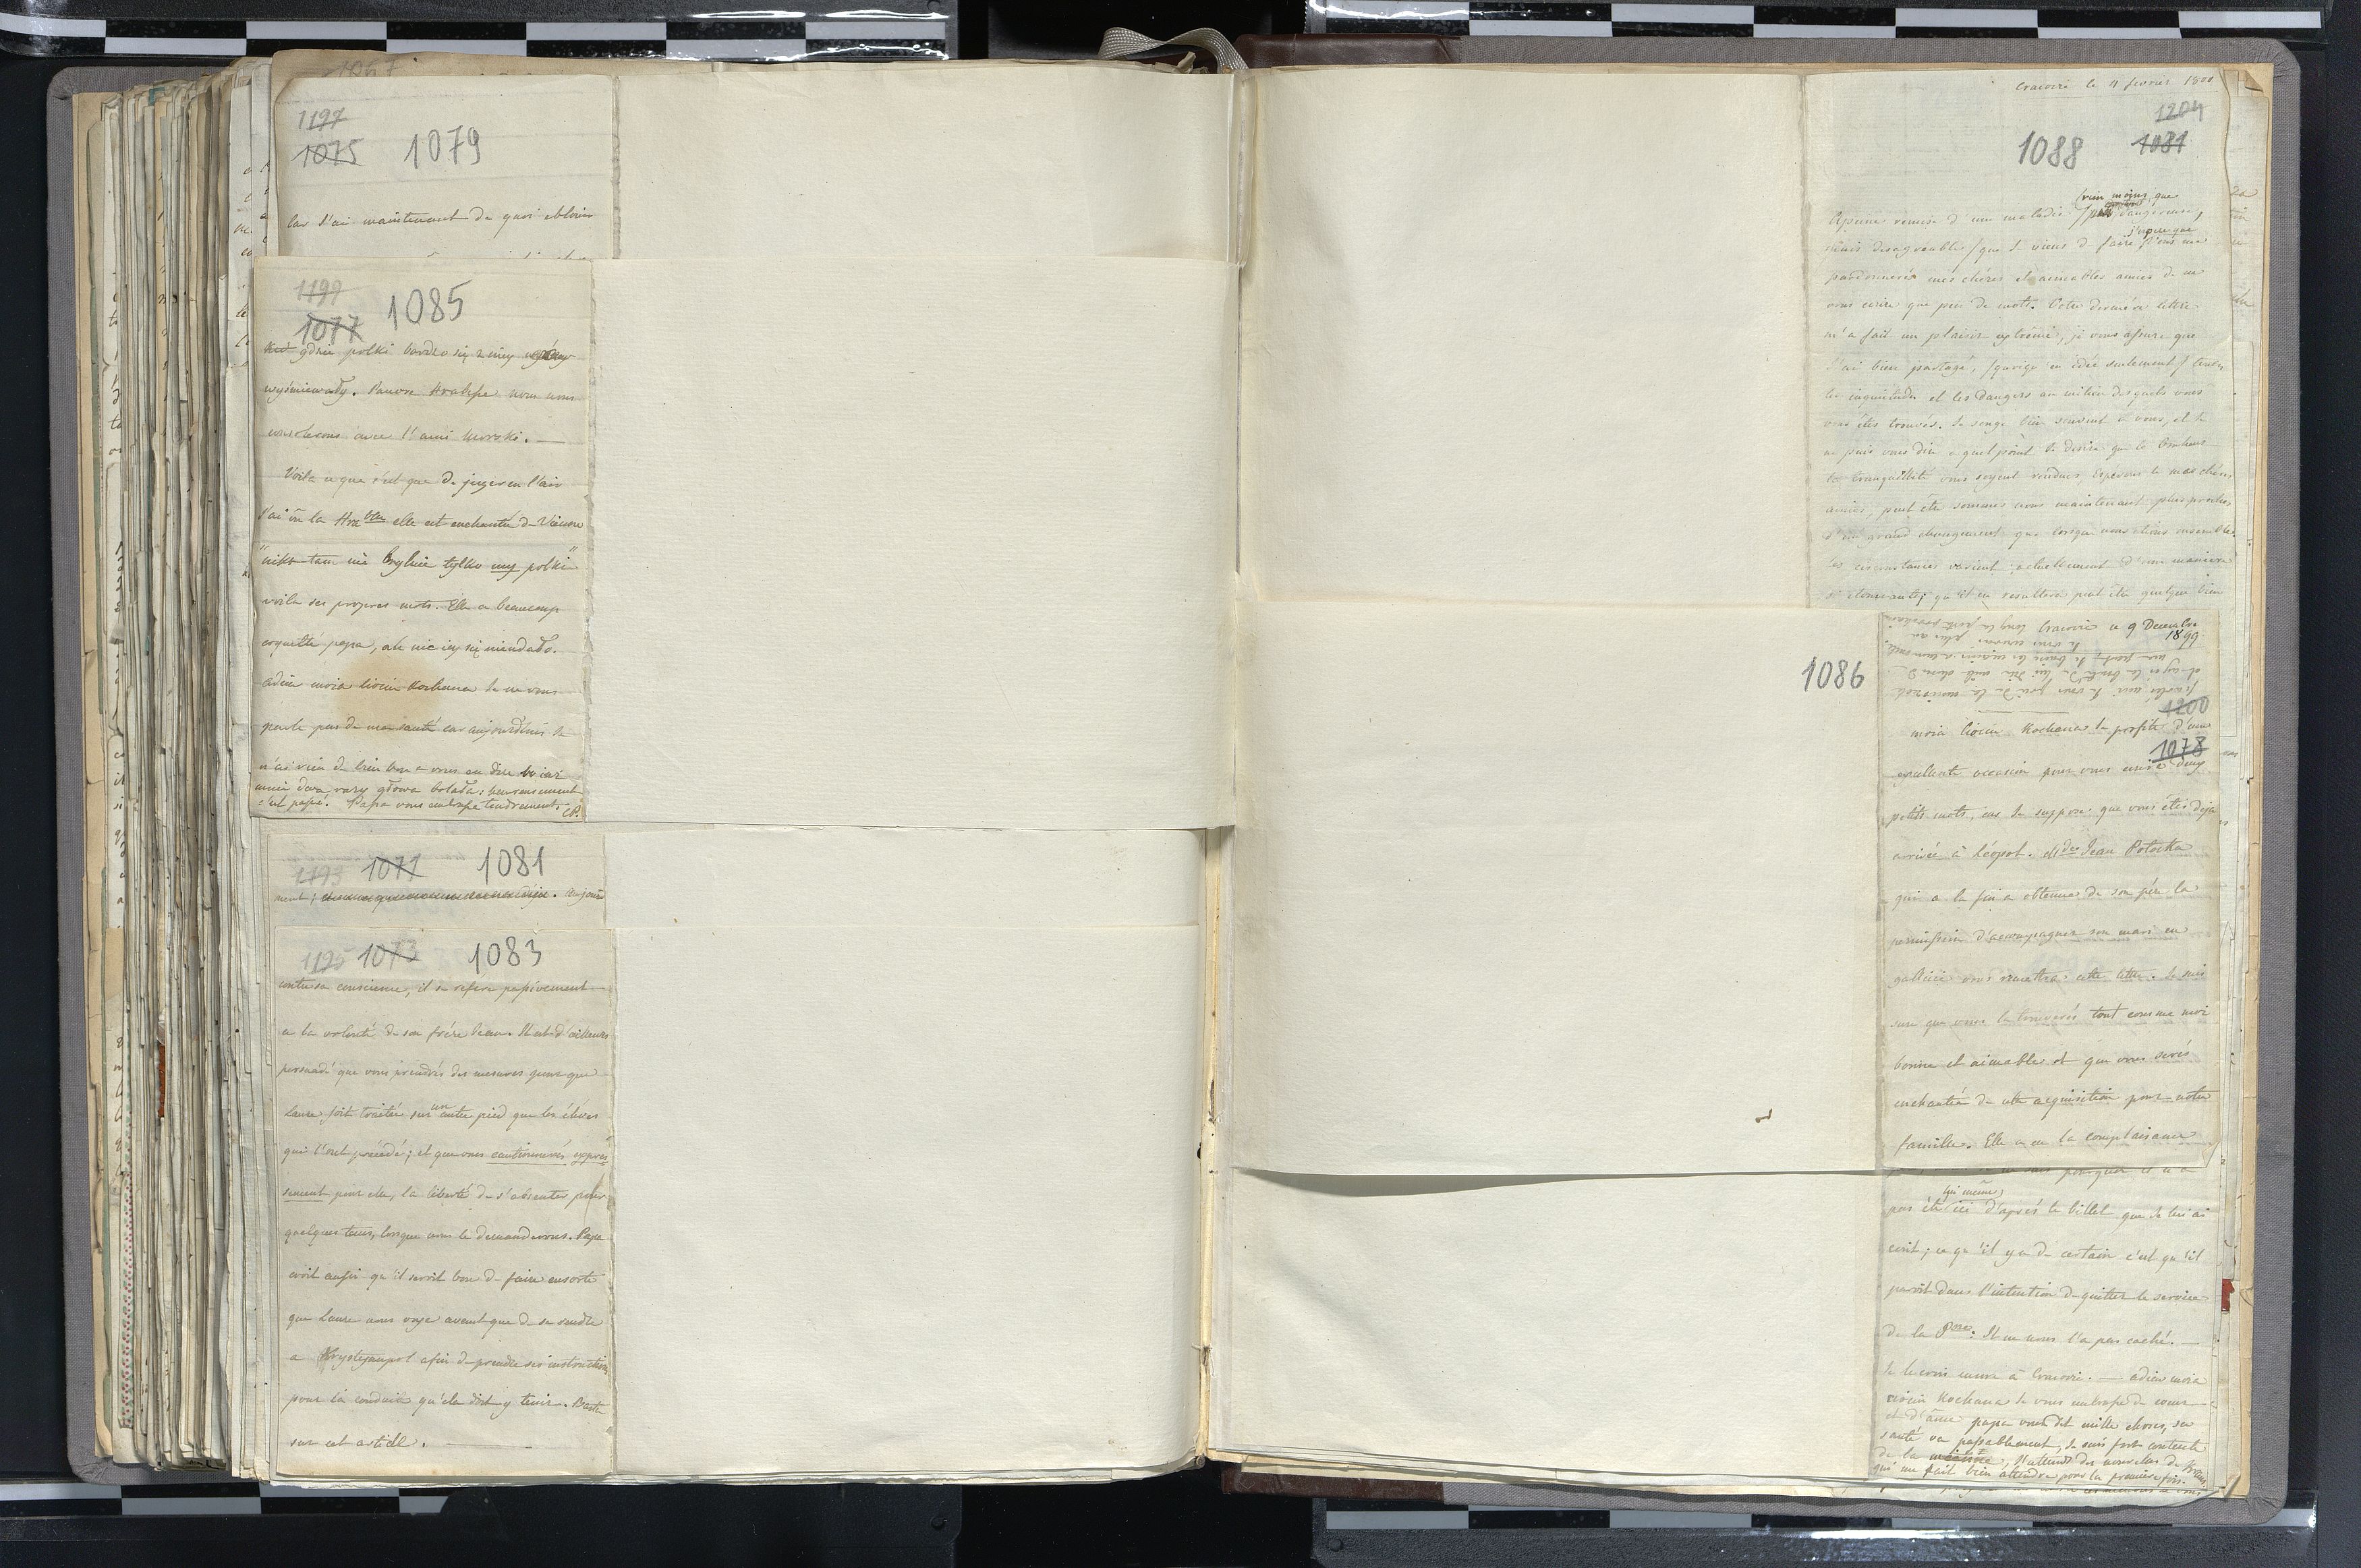 1197
1075 1079
Car j'ai maintenant de quoi eblouir
1199
1077 1085
gdzie polki bardzo się z niey
wyśmiewały. Pauvre nous nous
consolerons avec l'ami Morski. —
Voila ce que c'est que de juger en l'air
J'ai vu la elle est enchantée de Vienne
"nikt tam nie tylko my polki"
voila ses propres mots. Elle a beaucoup
coquetté papa, ale nic iey się nieudało.
adieu moia ciociu Kochana Je ne vous
parle pas de ma santé car aujourdhui je
n'ai rien de bien bon a vous en dire bo iuz
mnie dwa razy głowa bolała; heureusement
c'est passé. Papa vous embrasse tendrement. CP.
1193 1071 1081
ment; aujour
1195 1073 1083
contre sa conscience, il se refere passivement
a la volonté de son frére Jean. Il est d'ailleurs
persuadé que vous prendrés des mesures pour que
Laure soit traitée sur un autre pied que les éléves
qui l'ont précédé; et que vous cautionnerés expres
sement pour elle, la liberté de s'absenter pour
quelques tems, lorsque nous le demanderons. Papa
croit aussi qu'il seroit bon de faire ensorte
que Laure vous voye avant que de se rendre
a Krystynopol afin de prendre ses instructions
pour la conduite qu'elle doit y tenir. Basta
sur cet article. —
Cracovie le 11 fevrier 1800
1204
1088 1081
(rien moins que
Apeine remise d'une maladie dangereuse,
j'espere que
mais desagreable) que je viens de faire vous me
pardonnerés mes chéres et aimables amies de ne
vous ecrire que peu de mots. Votre derniére lettre
m'a fait un plaisir extrême, je vous assure que
j'ai bien partagé, (quoique en idée seulement) toutes
les inquietudes et les dangers au milieu desquels vous
vous êtes trouvés. Je songe bien souvent a vous, et je
ne puis vous dire a quel point je desire que le bonheur
la tranquillité vous soyent rendues, Esperons le mes chéres
amies, peut être sommes nous maintenant plus proches
d'un grand changement que lorsque nous étions ensemble.
les circonstances varient actuellement d'une maniere
si étonnante; qu'il en resultera peut être quelque bien
1086
Cracovie ce 9 Decembre
1899
1200
moia ciociu Kochana Je profite d'une
1078
excellente occasion pour vous ecrire deux
petits mots, car je suppose que vous êtes deja
arrivée à Léopol. Mde Jean Potocka
qui a la fin a obtenue de son pére la
permission d'accompagner son mari en
gallicie vous remettra cette lettre. Je suis
sure que vous la trouverés tout comme moi
bonne et aimable et que vous serés
enchantée de cette acquisition pour notre
famille. Elle a eu la complaisance
pourquoi il n'a
lui même)
pas été ici d'après le billet que je lui ai
ecrit; ce qu'il y a de certain c'est qu'il
paroît dans l'intention de quitter le service
de la Psse. Il ne nous l'a pas caché. —
Je le crois encore à Cracovie. — adieu moia
ciociu Kochana je vous embrasse de coeur
et d'âme papa vous dit mille choses, sa
santé va passablement, je suis fort contente
de la mienne, j'attends des nouvelles de
qui me fait bien attendre pour la premiere fois.